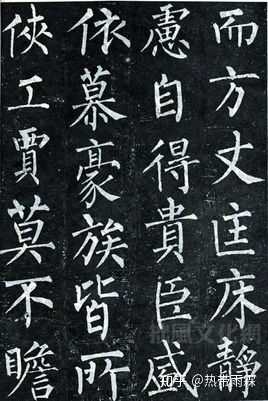 而方丈匡床靜
慮自得貴臣盛
依慕豪族皆所
俠工賈莫不瞻
知乎 @热带雨林